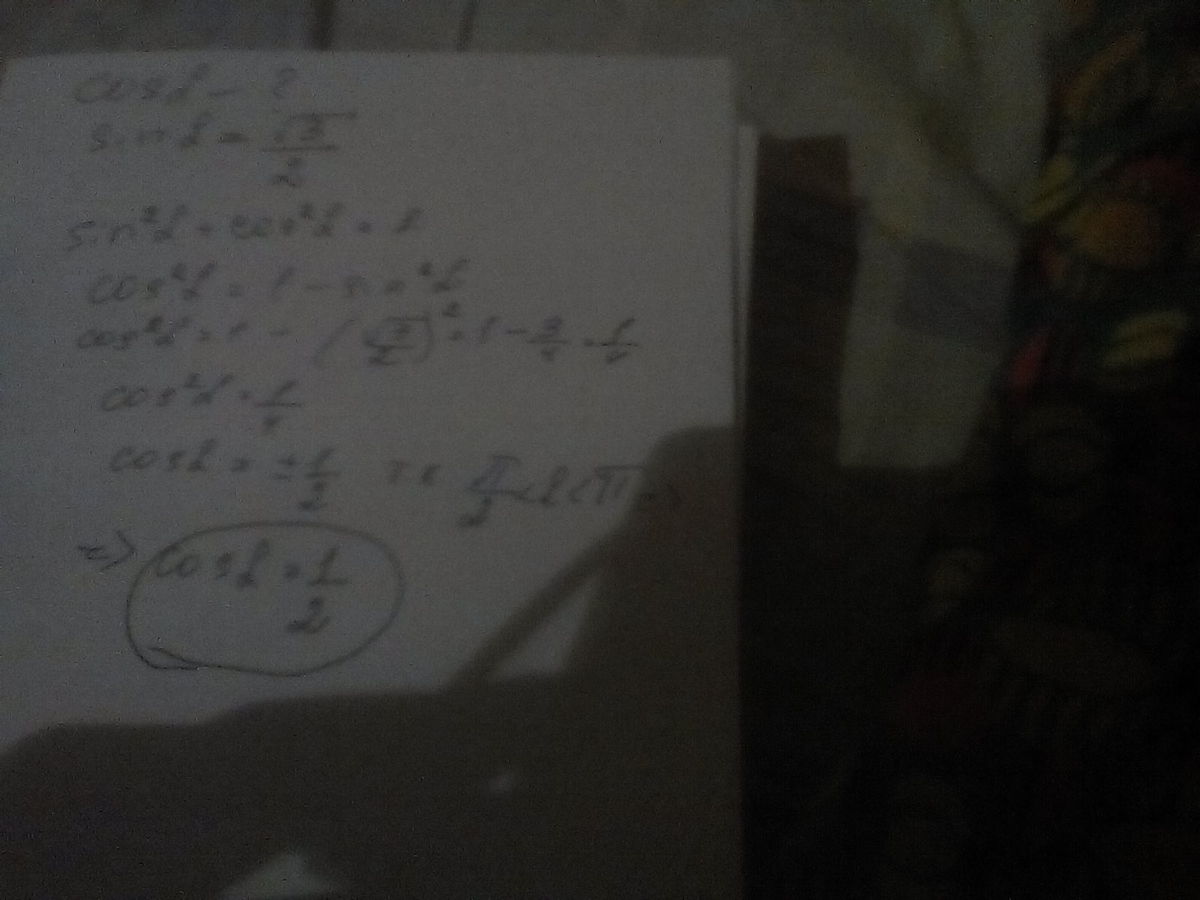 cosα - ?
sinα = √3/2
sin²α + cos²α = 1
cos²α = 1 - sin²α
cos²α = 1 - (√3/2)² = 1 - 3/4 = 1/4
cos²α = 1/4
cosα = ±1/2 т.к π/2 < α < π
=> cosα = 1/2